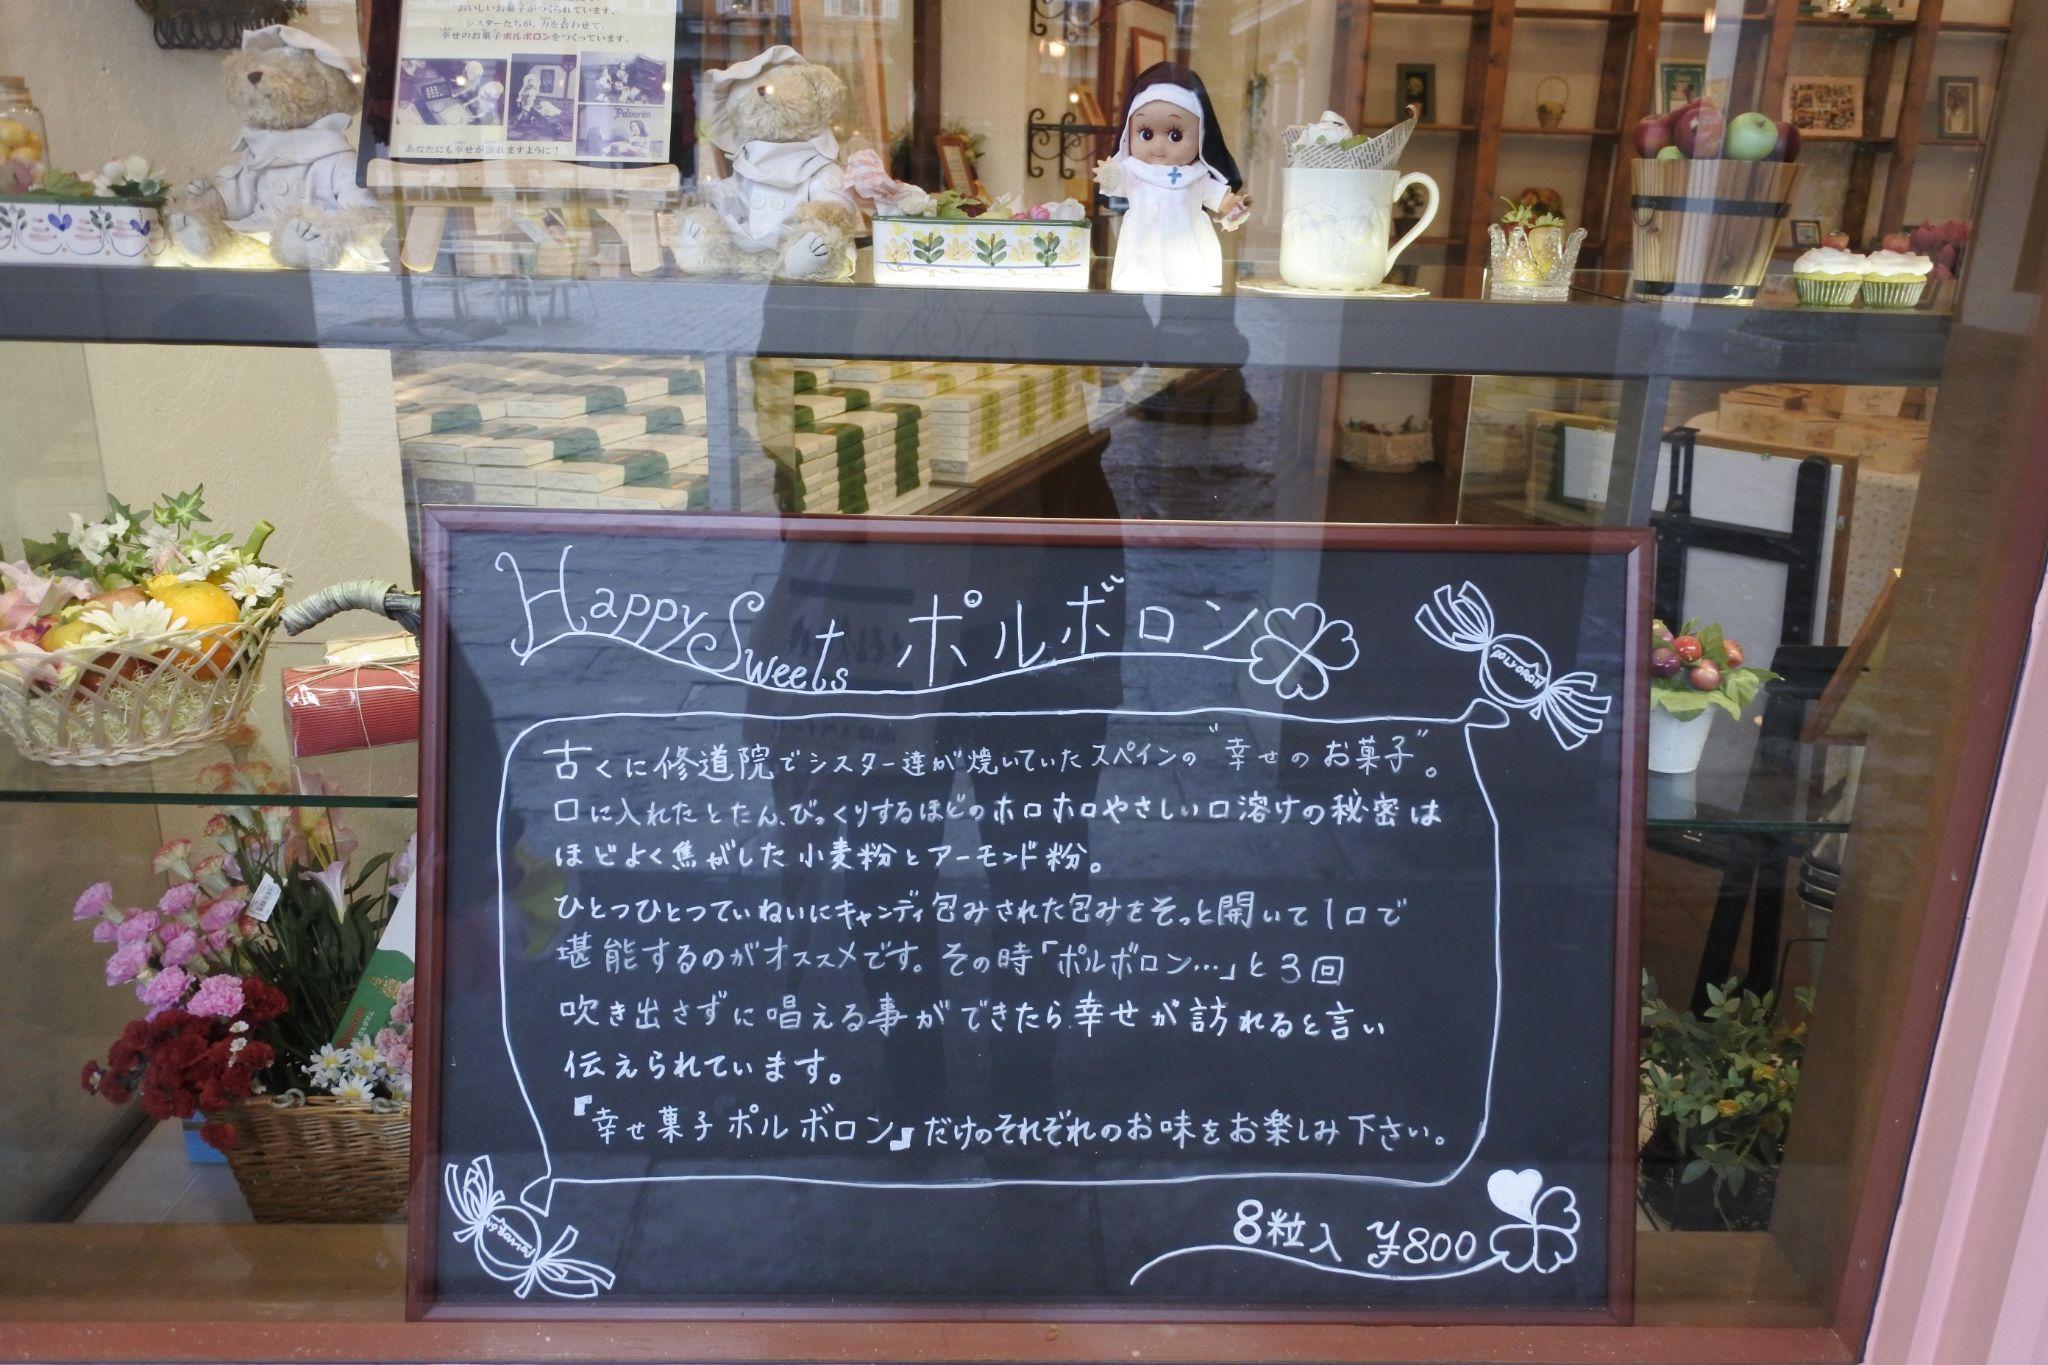 おいしいお菓子がつくられています。
シスターたちが、力を合わせて、
幸せのお菓子ポルボロンをつくっています。
Polvorón
あなたにも幸せが訪れますように！
Happy Sweets ポルボロン
POLVORON
古くに修道院でシスター達が焼いていたスペインの"幸せのお菓子"。
口に入れたとたん、びっくりするほどのホロホロやさしい口溶けの秘密は
ほどよく焦がした小麦粉とアーモンド粉。
ひとつひとつていねいにキャンディ包みされた包みをそっと開いて1口で
堪能するのがオススメです。その時「ポルボロン…」と3回
吹き出さずに唱える事ができたら幸せが訪れると言い
伝えられています。
『幸せ菓子ポルボロン』だけのそれぞれのお味をお楽しみ下さい。
POLVORON
8粒入 ¥800